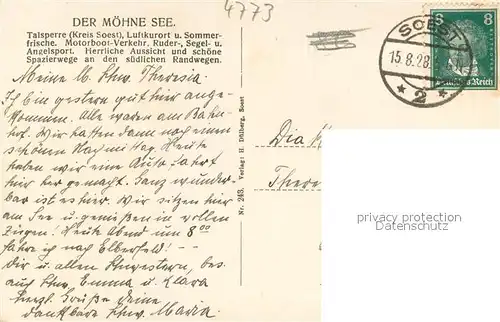 4773
DER MÖHNE SEE.
Talsperre (Kreis Soest), Luftkurort u. Sommer-
frische. Motorboot-Verkehr, Ruder-, Segel- u.
Angelsport. Herrliche Aussicht und schöne
Spazierwege an den südlichen Randwegen.
Meine lb. Schw. Theresia!
Ich bin gestern gut hier ange-
kommen. Alle waren am Bahn-
hof. Wir hatten dann noch einen
schönen Nachmittag. Heute
haben wir eine Auto fahrt
hier her gemacht. Ganz wunder-
bar ist es hier. Wir sitzen hier
am See u. genießen in vollen
Zügen! Heute Abend um 8 00
fahre ich nach Elberfeld! --
Dir u. allen Schwestern, bes.
auch Schw. Emma u. Klara
herzl. Grüße deine
dankbare Schw. Maria
Nr. 243. Verlag: H. Dülberg, Soest
SOEST
15.8.28.
* 2 *
8 8
Deutsches Reich
Diak
There
privacy protection
Datenschutz